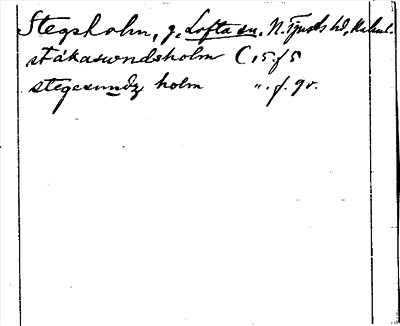 Stegsholm, g. Lofta sn. N. Tjusts hd, Kalm l.
stákaswndsholm C 15. f 5
stegesundz holm ". f. 9 v.